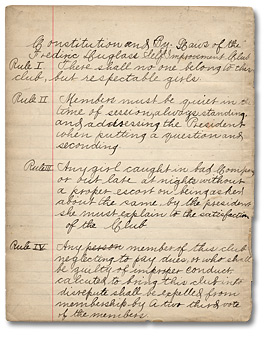 Constitution and By. Laws of the
Frederic Duglass Self Improvement Club
Rule I There shall no one belong to this
club, but respectable girls.
Rule II Members must be quiet in the
time of session, always standing
and addressing the President
when putting a question and
seconding
Rule III Any girl caught in bad Company
or out late at nights without
a proper escort on being asked
about the same by the president
she must explain to the satisfaction
of the Club
Rule IV. Any person member of this club
neglecting to pay dues, or who shall
be guilty of improper conduct
calculated to bring this club into
disrepute shall be expelled from
membership by a two third vote
of the members